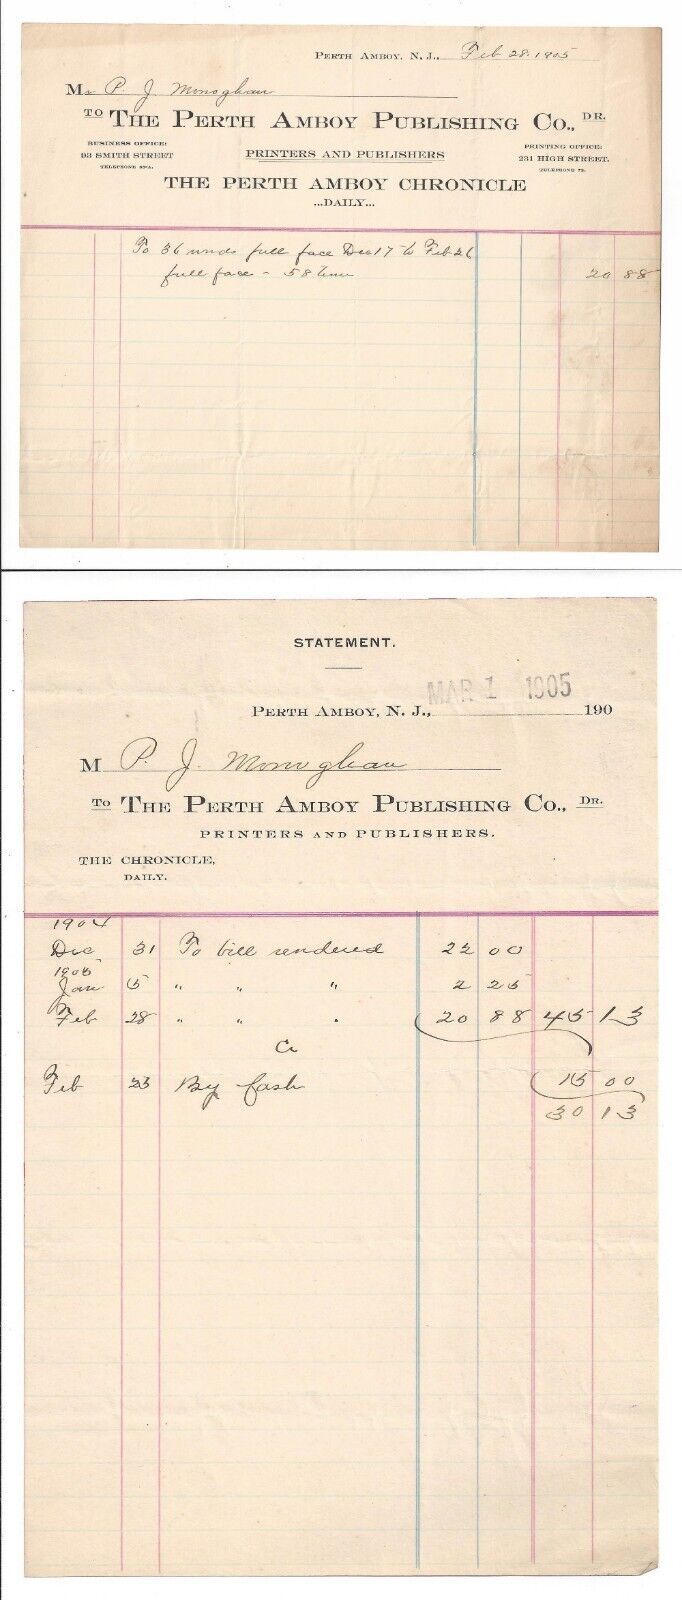 PERTH AMBOY, N. J., Feb 28. 1905
Mr P. J. Monoghan
TO THE PERTH AMBOY PUBLISHING CO., DR.
BUSINESS OFFICE:
93 SMITH STREET
PRINTERS AND PUBLISHERS
PRINTING OFFICE:
231 HIGH STREET.
THE PERTH AMBOY CHRONICLE
...DAILY...
To 36 full face Dec 17 to Feb 26
full face - 58 20 88
STATEMENT.
MAR 1 1905
PERTH AMBOY, N. J., 190
M P. J. Monoghan
To THE PERTH AMBOY PUBLISHING CO., DR.
PRINTERS AND PUBLISHERS.
THE CHRONICLE,
DAILY.
1904
Dec 31 To bill rendered 22 00
1905
Jan 5 " " " 2 25
Feb 28 " " " 20 88 45 13
Cr
Feb 23 By Cash 15 00
30 13